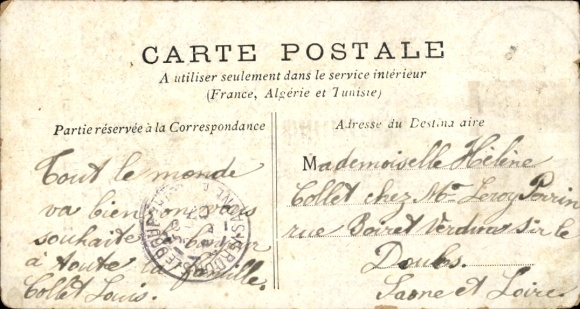 CARTE POSTALE
A utiliser seulement dans le service intérieur
(France, Algérie et Tunisie)
Partie réservée à la Correspondance
Tout le monde
va bien on vous
souhaite le bonjour
à toute la famille.
Collet Louis.
Adresse du Destinataire
Mademoiselle Hélène
Collet chez Mr Leroy Perrin
rue Boiret Verdun sir le
Doubs.
Saone et Loire.